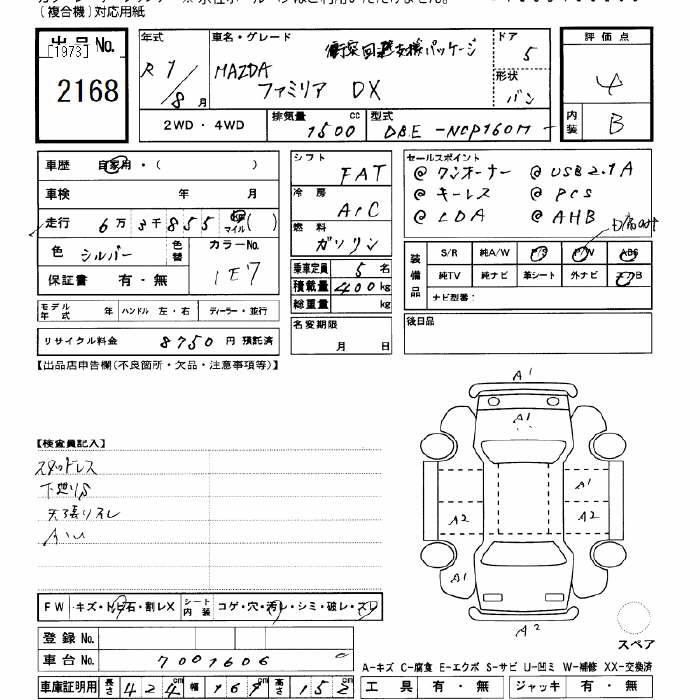 (複合機)対応用紙
出品No.
[1973]
2168
年式
R1/8月
車名・グレード
衝突回避支援パッケージ
MAZDA
ファミリア DX
ドア
5
形状
バン
評価点
4
内装
B
2WD・4WD
排気量
1500 cc
型式
DBE-NCP160M
車歴 自家用・( )
車検 年 月
走行 6万3千855 km マイル( )
色 シルバー 色替
カラーNo.
1E7
保証書 有・無
モデル年式 年 ハンドル 左・右 ディーラー・並行
リサイクル料金 8750 円 預託済
シフト
FAT
冷房
A/C
燃料
ガソリン
乗車定員 5名
積載量 400kg
総重量 kg
名変期限
月 日
セールスポイント
@ワンオーナー @USB2.1A
@キーレス @PCS
@LDA @AHB
装備品
S/R 純A/W P/S P/W ABS
純TV 純ナビ 革シート 外ナビ エアB
ナビ型番:
後日品
【出品店申告欄(不良箇所・欠品・注意事項等)】
【検査員記入】
スタッドレス
下廻りS
天張りスレ
FW キズ・トビ石・割レX シート内装 コゲ・穴・汚レ・シミ・破レ・スレ
登録No.
車台No. 7001606
車庫証明用 長さ 424cm 幅 169cm 高さ 152cm
A1
A1
A1
A2
A2
A1
A2
スペア
A-キズ C-腐食 E-エクボ S-サビ U-凹ミ W-補修 XX-交換済
工具 有・無 ジャッキ 有・無